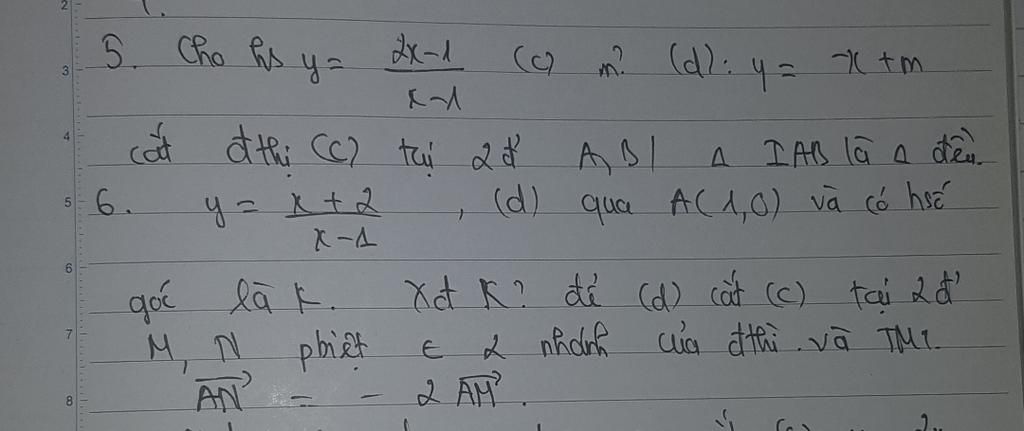 5. Cho hs y = \frac{2x-1}{x-1} (C) m? (d): y = -x+m
cắt đthị (C) tại 2đ' A, B | Δ IAB là Δ đều.
6. y = \frac{x+2}{x-1}, (d) qua A(1,0) và có hsố
góc là K. Xđ K? để (d) cắt (C) tại 2đ'
M, N phiệt ∈ 2 nhánh của đthị. và TM:
\vec{AN} = -2\vec{AM}.